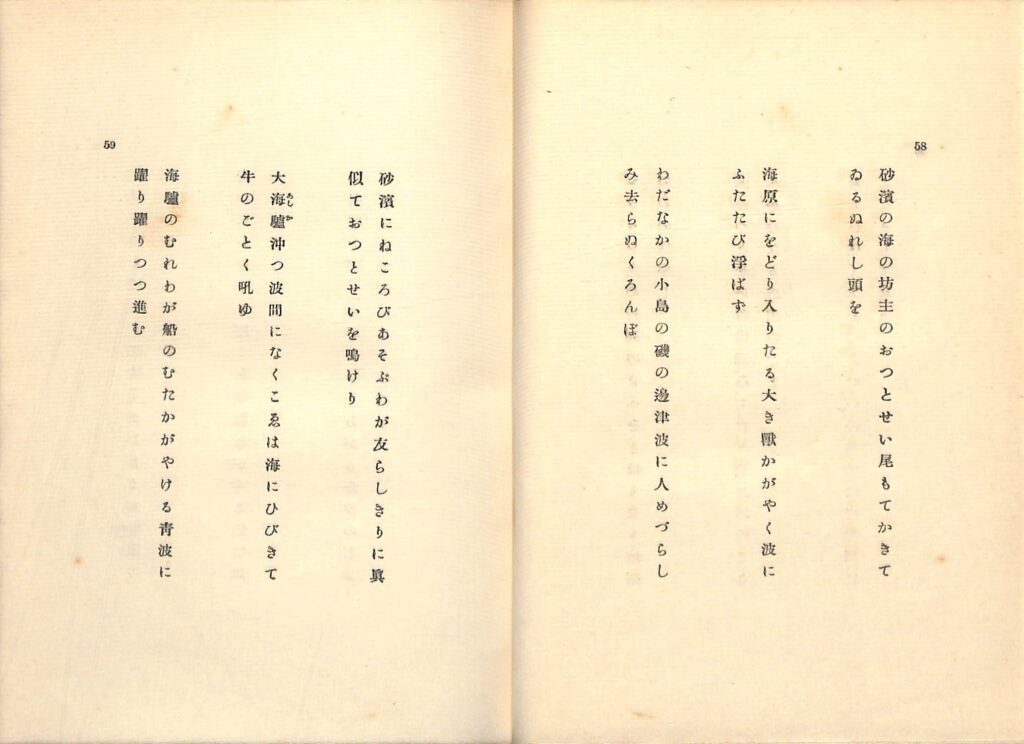 58
砂濱の海の坊主のおつとせい尾もてかきて
ゐるぬれし頭を
海原にをどり入りたる大き獸かがやく波に
ふたたび浮ばず
わだなかの小島の磯の邊津波に人めづらし
み去らぬくろんぼ
59
砂濱にねころびあそぶわが友らしきりに眞
似ておつとせいを鳴けり
大海驢沖つ波間になくこゑは海にひびきて
あしか
牛のごとく吼ゆ
海驢のむれわが船のむたかがやける靑波に
躍り躍りつつ進む